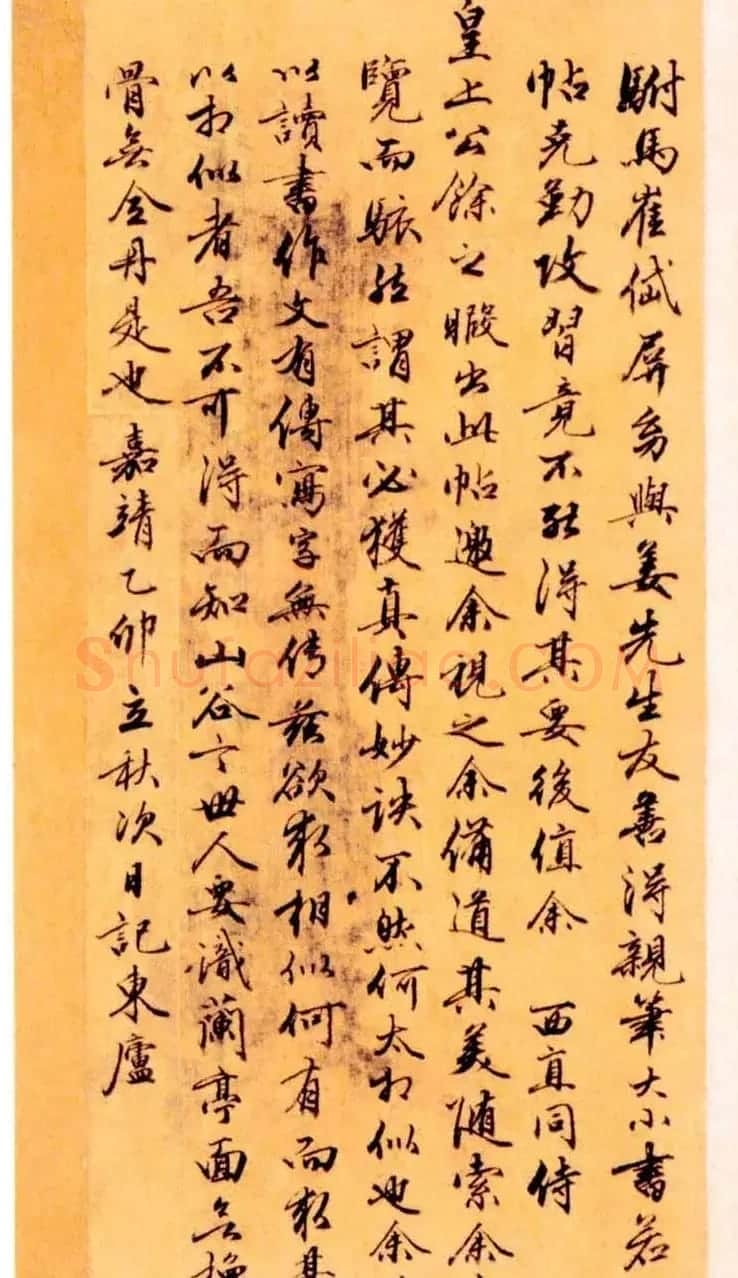 駙馬崔岱屏素與姜先生友善得親筆大小書若
帖克勤攻習竟不能得其要後值余 西直同侍
皇上公餘之暇出此帖邀余視之余備道其美随索余
覽而駭然謂其必獲真傳妙訣不然何太相似也余
以讀書作文有傳寫字無传茲欲求相似何有而求其
以相似者吾不可得而知山谷云世人要識蘭亭面無換
骨無金丹是也 嘉靖乙卯立秋次日記東廬
Shufaziliao.COM